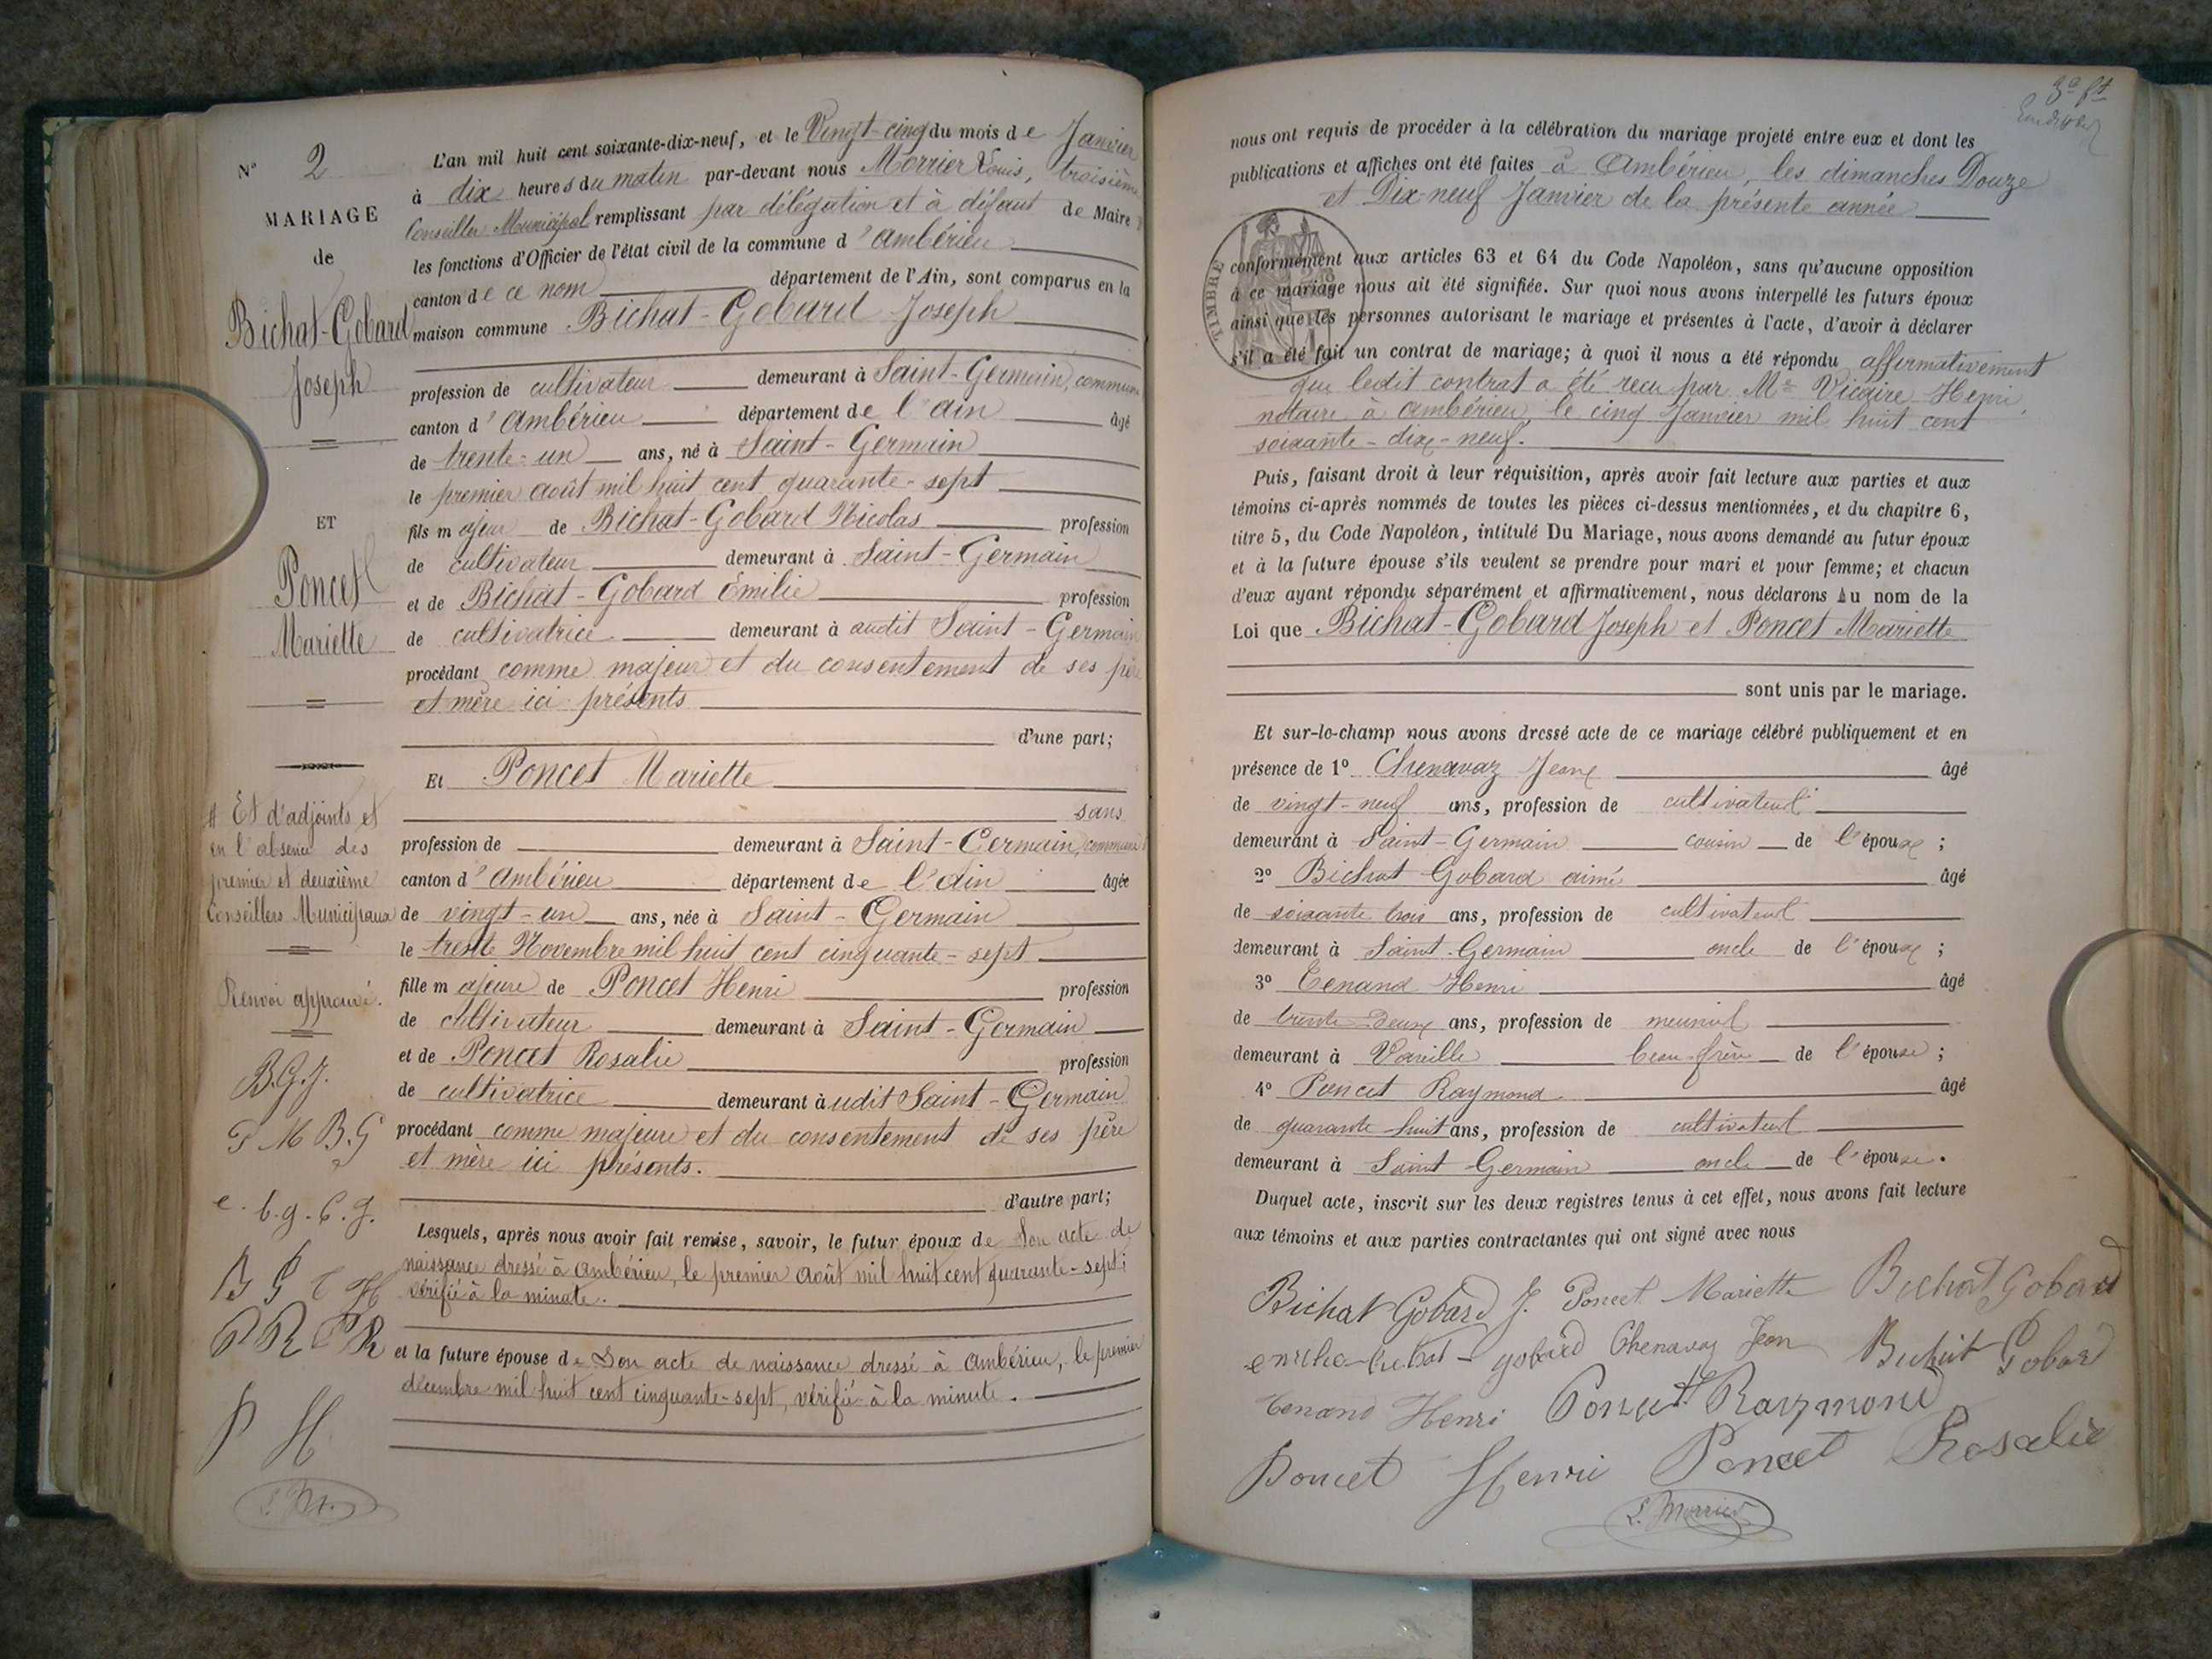 N° 2
MARIAGE
de
Bichat-Gobard
Joseph
ET
Poncet
Mariette
# Et d'adjoints et
en l'absence des
premier et deuxième
Conseillers Municipaux
Renvoi approuvé.
B.G.J.
P M B.G
e. b.g. C.J.
B G T H
P R P R
P H
L'an mil huit cent soixante-dix-neuf, et le Vingt-cinq du mois de Janvier
à dix heures du matin par-devant nous Morrier Louis, troisième
Conseiller Municipal remplissant par délégation et à défaut de Maire #
les fonctions d'Officier de l'état civil de la commune d'Ambérieu
canton de ce nom département de l'Ain, sont comparus en la
maison commune Bichat-Gobard Joseph
profession de cultivateur demeurant à Saint-Germain, commune
canton d'Ambérieu département de l'ain âgé
de trente-un ans, né à Saint-Germain
le premier août mil huit cent quarante-sept
fils majeur de Bichat-Gobard Nicolas profession
de cultivateur demeurant à Saint-Germain
et de Bichat-Gobard Émilie profession
de cultivatrice demeurant à audit Saint-Germain
procédant comme majeur et du consentement de ses père
et mère ici présents
d'une part;
Et Poncet Mariette
sans
profession de demeurant à Saint-Germain, commune
canton d'Ambérieu département de l'Ain âgée
de vingt-un ans, née à Saint-Germain
le trente Novembre mil huit cent cinquante-sept
fille majeure de Poncet Henri profession
de cultivateur demeurant à Saint-Germain
et de Poncet Rosalie profession
de cultivatrice demeurant à udit Saint-Germain
procédant comme majeure et du consentement de ses père
et mère ici présents.
d'autre part;
Lesquels, après nous avoir fait remise, savoir, le futur époux de Son acte de
naissance dressé à Ambérieu, le premier Août mil huit cent quarante-sept;
vérifié à la minute.
et la future épouse de Son acte de naissance dressé à Ambérieu, le premier
décembre mil huit cent cinquante-sept, vérifié à la minute.
nous ont requis de procéder à la célébration du mariage projeté entre eux et dont les
publications et affiches ont été faites à Ambérieu, les dimanches Douze
et Dix-neuf Janvier de la présente année
TIMBRE
conformément aux articles 63 et 64 du Code Napoléon, sans qu'aucune opposition
à ce mariage nous ait été signifiée. Sur quoi nous avons interpellé les futurs époux
ainsi que les personnes autorisant le mariage et présentes à l'acte, d'avoir à déclarer
s'il a été fait un contrat de mariage; à quoi il nous a été répondu affirmativement
que ledit contrat a été reçu par Me Vicaire Henri,
notaire à Ambérieu, le cinq Janvier mil huit cent
soixante-dix-neuf.
Puis, faisant droit à leur réquisition, après avoir fait lecture aux parties et aux
témoins ci-après nommés de toutes les pièces ci-dessus mentionnées, et du chapitre 6,
titre 5, du Code Napoléon, intitulé Du Mariage, nous avons demandé au futur époux
et à la future épouse s'ils veulent se prendre pour mari et pour femme; et chacun
d'eux ayant répondu séparément et affirmativement, nous déclarons Au nom de la
Loi que Bichat-Gobard Joseph et Poncet Mariette
sont unis par le mariage.
Et sur-le-champ nous avons dressé acte de ce mariage célébré publiquement et en
présence de 1° Chenavaz Jean âgé
de vingt-neuf ans, profession de cultivateur
demeurant à Saint-Germain cousin de l'époux ;
2° Bichat Gobard aimé âgé
de soixante trois ans, profession de cultivateur
demeurant à Saint-Germain oncle de l'époux ;
3° Tenand Henri âgé
de trente-deux ans, profession de meunier
demeurant à Vareille beau-frère de l'épouse ;
4° Poncet Raymond âgé
de quarante-huit ans, profession de cultivateur
demeurant à Saint Germain oncle de l'épouse.
Duquel acte, inscrit sur les deux registres tenus à cet effet, nous avons fait lecture
aux témoins et aux parties contractantes qui ont signé avec nous
Bichat Gobard J. Poncet Mariette Bichat Gobard
emilie-bichat-gobard Chenavaz Jean Bichat Gobard
tenand Henri Poncet Raymond
Poncet Henri Poncet Rosalie
L. Morrier